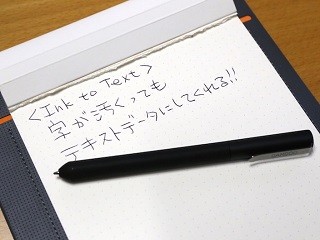 <Ink to Text>
字が汚くっても
テキストデータにしてくれる!!